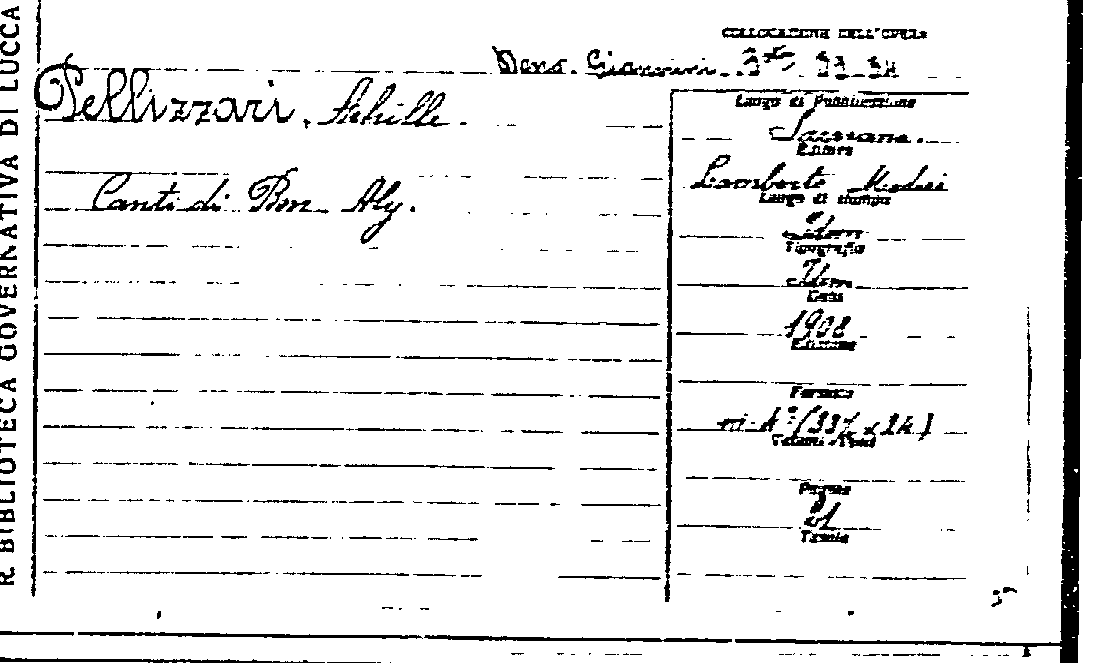 R. BIBLIOTECA GOVERNATIVA DI LUCCA
COLLOCAZIONE DELL'OPERA
Dono. Giannini.
Pellizzari, Achille.
Canti di Ben Aly.
Luogo di Pubblicazione
Editore
Lamberto
Luogo di stampa
Idem
Tipografia
Idem
Data
1908
Edizione
Formato
in-4°
Pagine
Tavole